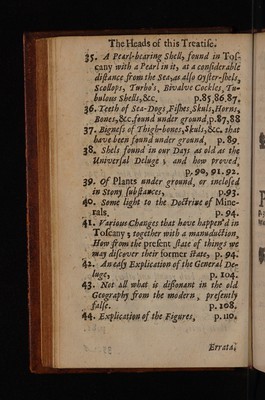 The Heads of this Treatise.
35. A Pearl-bearing Shell, found in Tos-
cany with a Pearl in it, at a considerable
distance from the Sea, as also Oyster-shels,
Scollops, Turbo's, Bivalve Cockles, Tu-
bulous Shells, &c. p.85,86,87.
36. Teeth of Sea-Dogs, Fishes, Skuls, Horns,
Bones, &c. found under ground, p.87,88
37. Bigness of Thigh-bones, Skuls, &c. that
have been found under ground, p. 89.
38. Shels found in our Days as old as the
Universal Deluge; and how proved,
p. 90, 91. 92.
39. Of Plants under ground, or inclosed
in Stony substances, p.93.
40. Some light to the Doctrine of Mine-
rals, p. 94.
41. Various Changes that have happen'd in
Toscany; together with a manuduction,
How from the present state of things we
may discover their former state, p. 94.
42. An easy Explication of the General De-
luge, p. 104.
43. Not all what is disonant in the old
Geography from the modern, presently
false. p. 108.
44. Explication of the Figures, p. 110.
Errata,